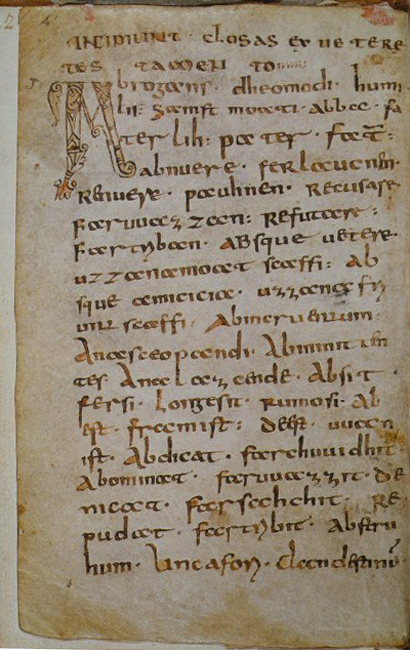 INCIPIUNT · closas ex vetere
tes tamen to
Abrogans · dheomodi · humi
lis: samft moati · abba · fa
ter lih: pater · fater:
abnuere · ferlaucnen ·
Renuere · pauhnen · Recusare
Faruuazzan: Refutare:
Fartriban · ABsque uetere
uzzana moat scaffi: Ab
sque amicicia · uzzana fri
unt scaffi · Abincruentum ·
Anasceopandi · Abminen
tes · Analazende · Absit ·
fersi · Longesit · Rumosi · Ab
est · framist: deest · uuan
ist · Abdicat · farchuuidhit ·
Abominat · faruuazzit · De
nicat · farsechchit · Re
pudiat · fartribit ·
hum ·